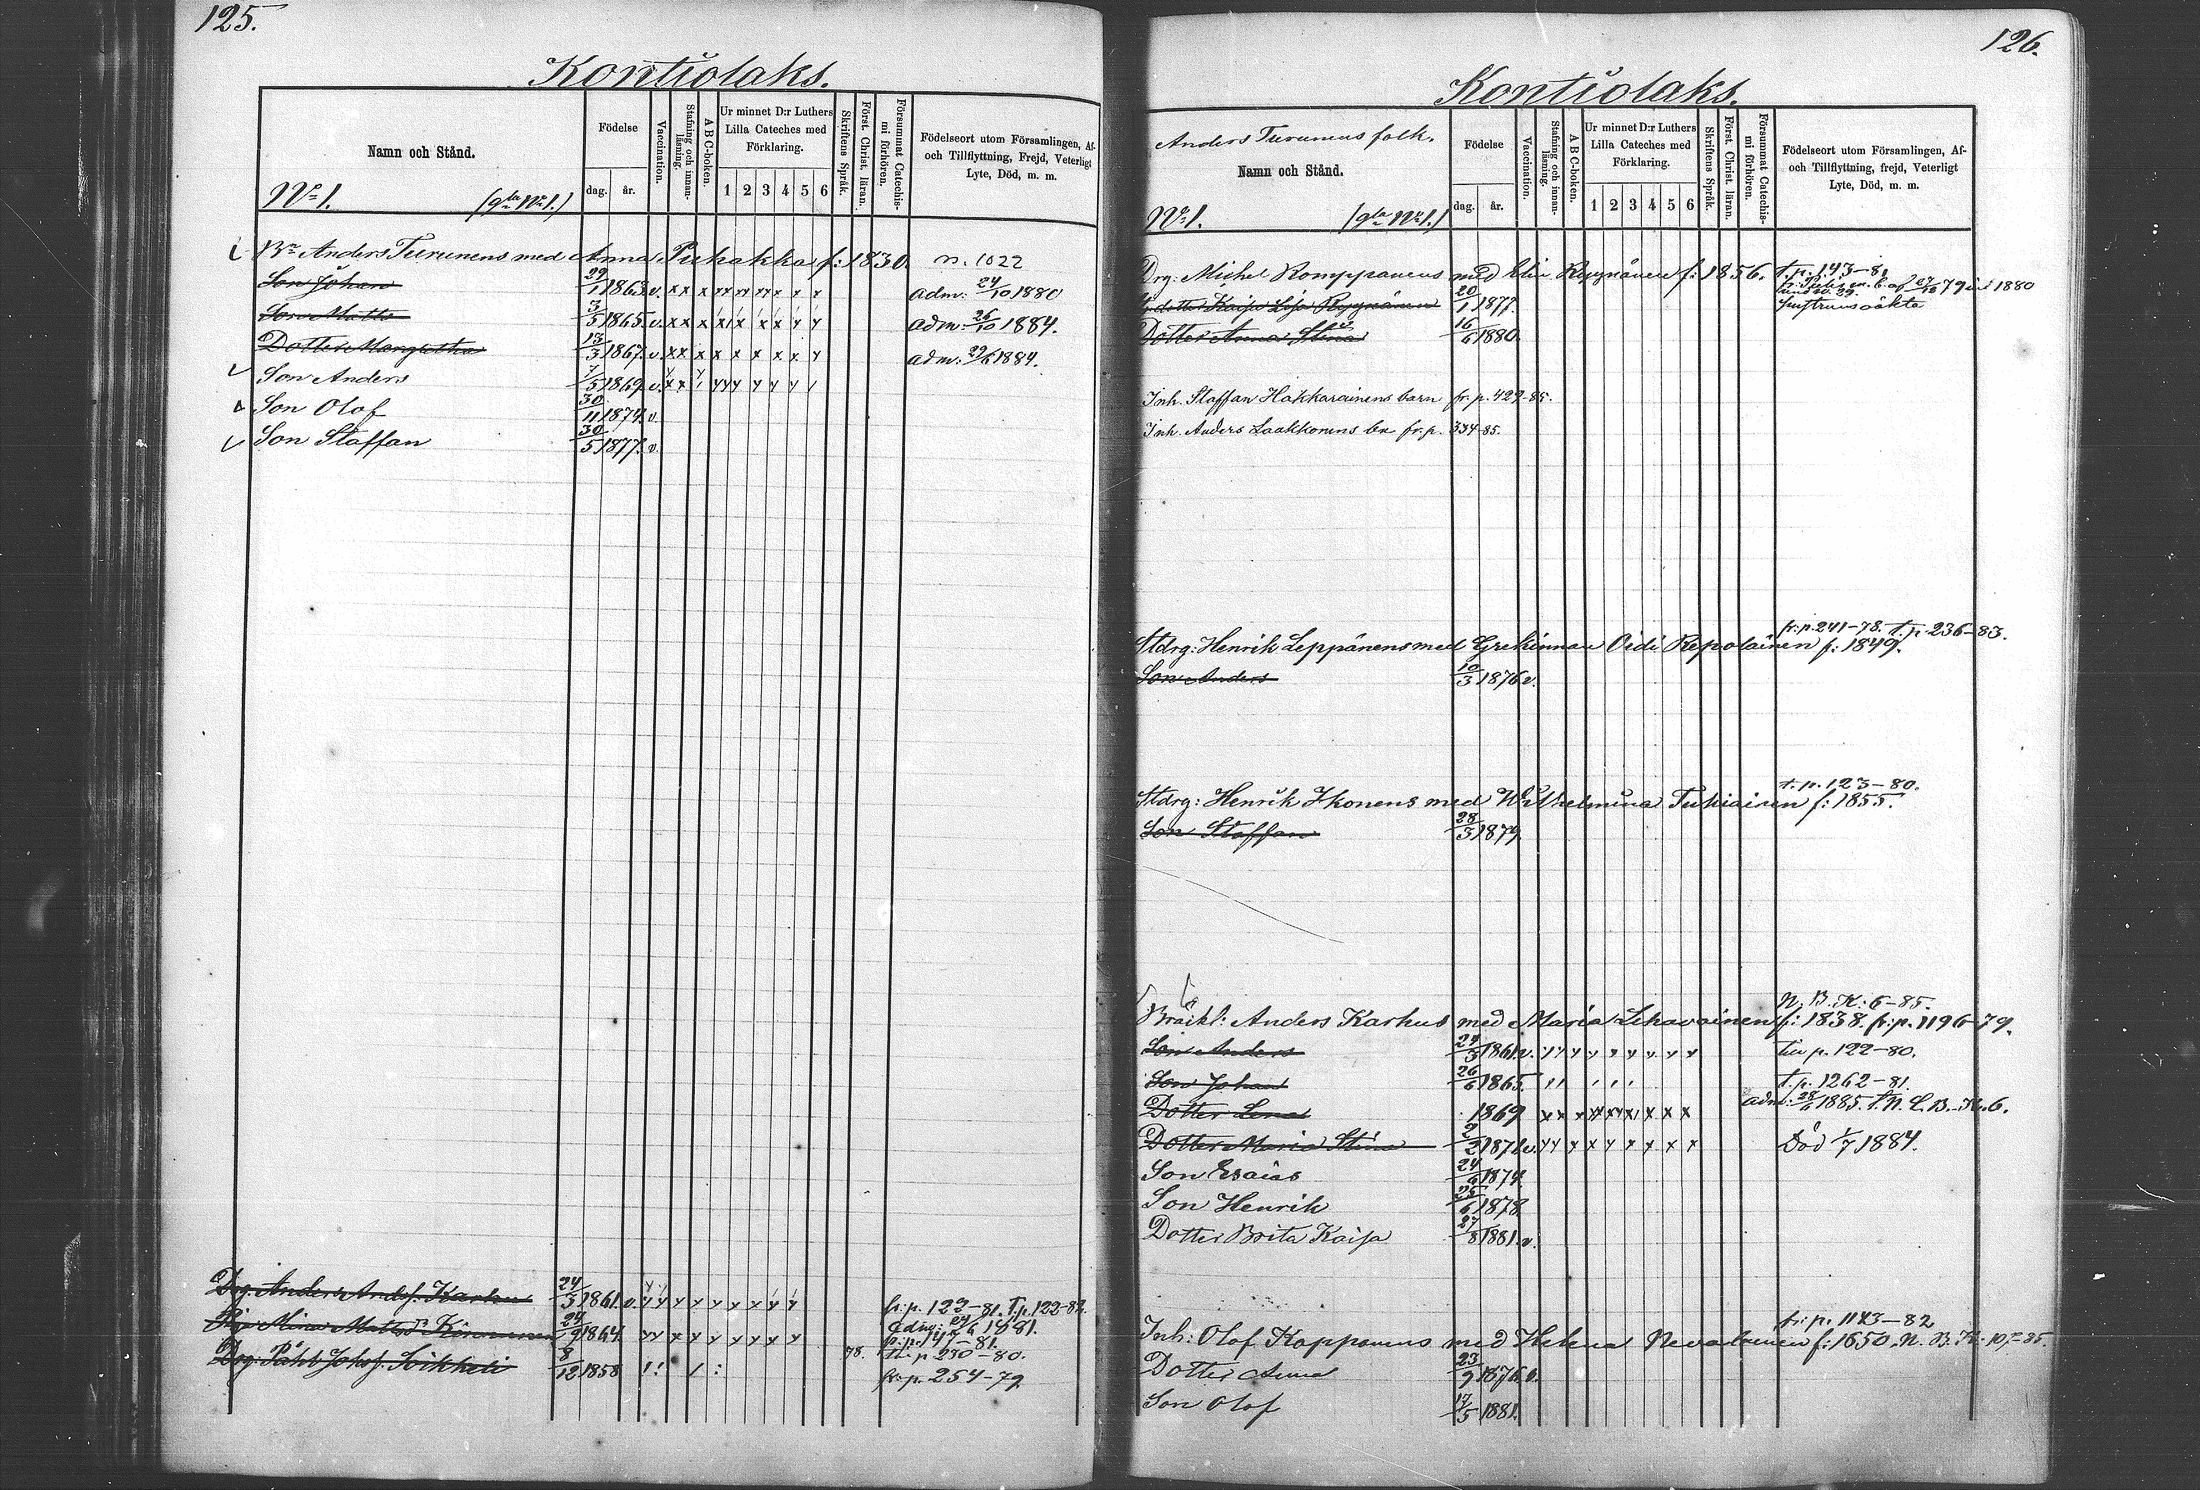 125.
Kontiolaks.
Namn och Stånd.
Födelse
dag. år.
Vaccination.
Stafning och innanläsning.
A B C-boken.
Ur minnet D:r Luthers
Lilla Cateches med
Förklaring.
1 2 3 4 5 6
Skriftens Språk.
Först. Christ. läran.
Försummat Catechismi förhören.
Födelseort utom Församlingen, Af-
och Tillflyttning, Frejd, Veterligt
Lyte, Död, m. m.
No 1. (gla No 1.)
Bn Anders Turunens med Anna Puhakka f: 1830. n. 1022
Son Johan 29/1 1863. v. x x x adm: 24/10 1880
Son Matts 3/5 1865. v. x x x adm: 26/10 1884.
Dotter Margretha 13/3 1867. v. x x x x x x x adm: 29/6 1884.
Son Anders 7/5 1869. v.
Son Olof 30/11 1874. v.
Son Staffan 30/5 1877. v.
Drg. Anders Andsf. Karhu 24/3 1861. v. fr: p. 122-81. T. p. 122-82
Mina Mattsdr 24/9 1864. adm: 24/6 1881.
t. p. 230-80.
Drg. Påhl Johsf. 8/12 1858 78. fr. p. 254-79
126.
Kontiolaks.
Anders Turunens folk.
Namn och Stånd.
Födelse
dag. år.
Vaccination.
Stafning och innanläsning.
A B C-boken.
Ur minnet D:r Luthers
Lilla Cateches med
Förklaring.
1 2 3 4 5 6
Skriftens Språk.
Först. Christ. läran.
Försummat Catechismi förhören.
Födelseort utom Församlingen, Af-
och Tillflyttning, frejd, Veterligt
Lyte, Död, m. m.
No 1. (gla No 1.)
t. p. 143-81
Drg. Michel Romppanens med Elin Ryynänen f: 1856.
dotter Kaisa Lisa Ryynänen 20/1 1877.
Dotter Anna Stina 16/6 1880.
Inh. Staffan Hakkarainens barn fr. p. 429-85.
Inh. Anders Laakkonens bn fr. p. 334-85.
fr: p. 241-78. t. p. 236-83.
Stdrg: Henrik Leppänens med Grekinnan Oidi Repolainen f: 1849.
Son Anders 10/3 1876 v.
t. p. 123-80.
Stdrg: Henrik Ikonens med Wilhelmina Tukiainen f: 1855.
Son Staffan 28/5 1879.
N. B. K: 6-85.
Bräkl: Anders Karhus med Maria Lehvainen f: 1838. fr: p. 1196-79.
Son Anders 24/3 1861. v. p. 122-80.
Son Johan 26/6 1865. t. p. 1262-81.
Dotter Lena 1869 x x x adm: 28/6 1885. t. N. C. B. K. 6.
Dotter Maria Stina 2/2 1871. v. Död 1/7 1884.
Son Esaias 24/6 1874.
Son Henrik 25/6 1878.
Dotter Brita Kaisa 27/8 1881. v.
fr: p. 1143-82
Inh: Olof Kopponens med Helena Nevalainen f: 1850. N. B. K: 107-85.
Dotter Anna 23/9 1876. v.
Son Olof 17/5 1881.